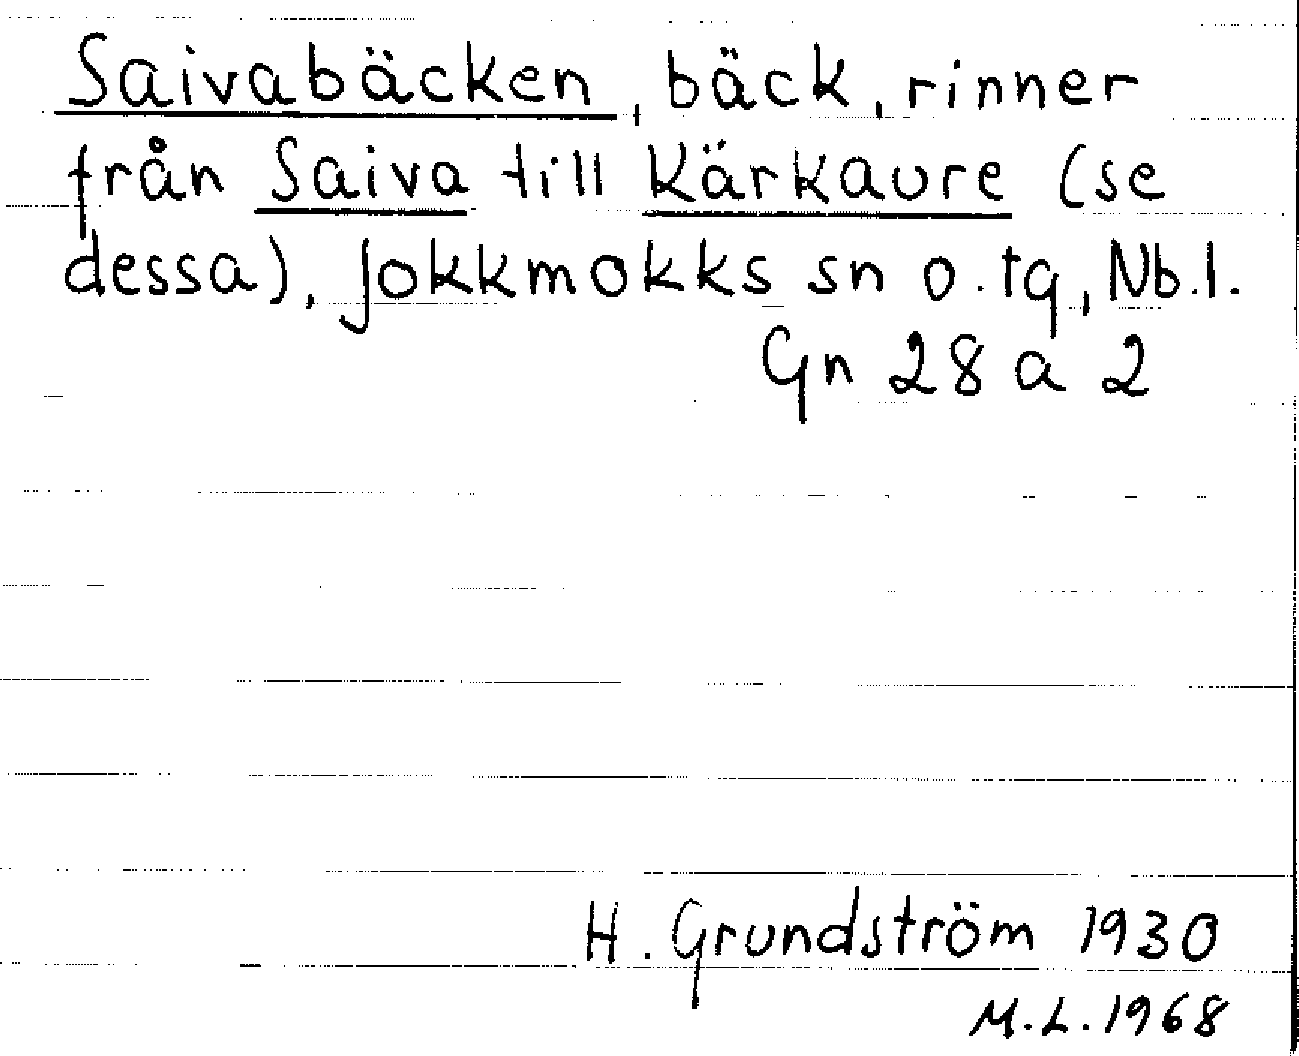 Saivabäcken, bäck, rinner
från Saiva till Kärkaure (se
dessa), Jokkmokks sn o. tg, Nb. l.
Gn 28 a 2
H. Grundström 1930
M.L. 1968